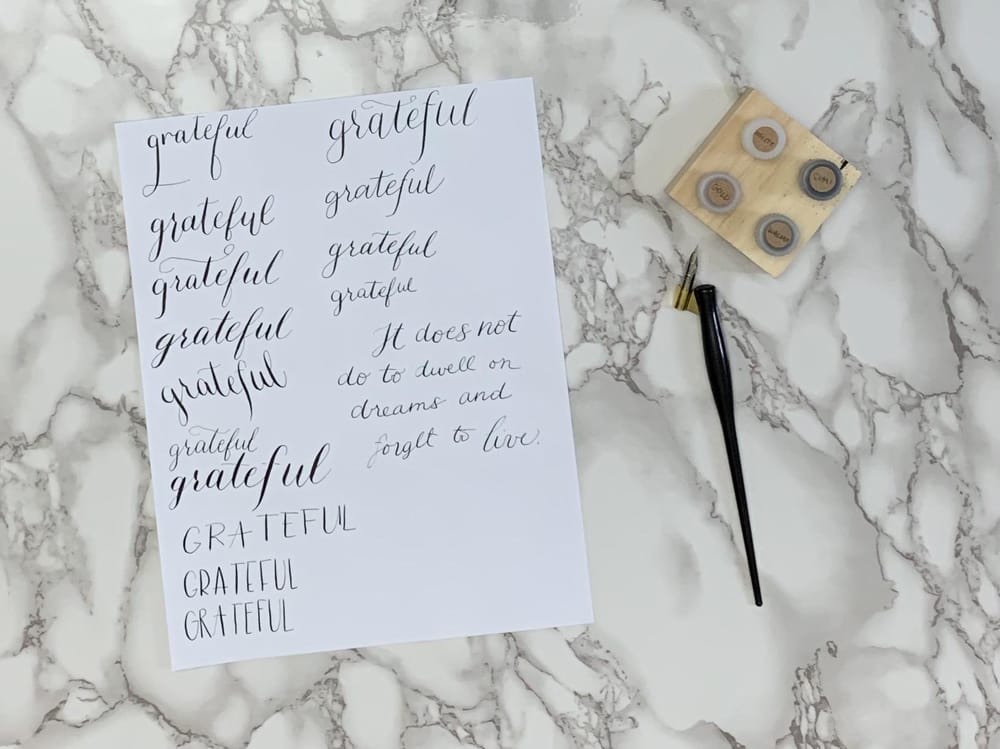 grateful
grateful
grateful
grateful
grateful
grateful
grateful
GRATEFUL
GRATEFUL
GRATEFUL
grateful
grateful
grateful
grateful
It does not
do to dwell on
dreams and
forget to live.
GOLD
SUMI
WALNUT